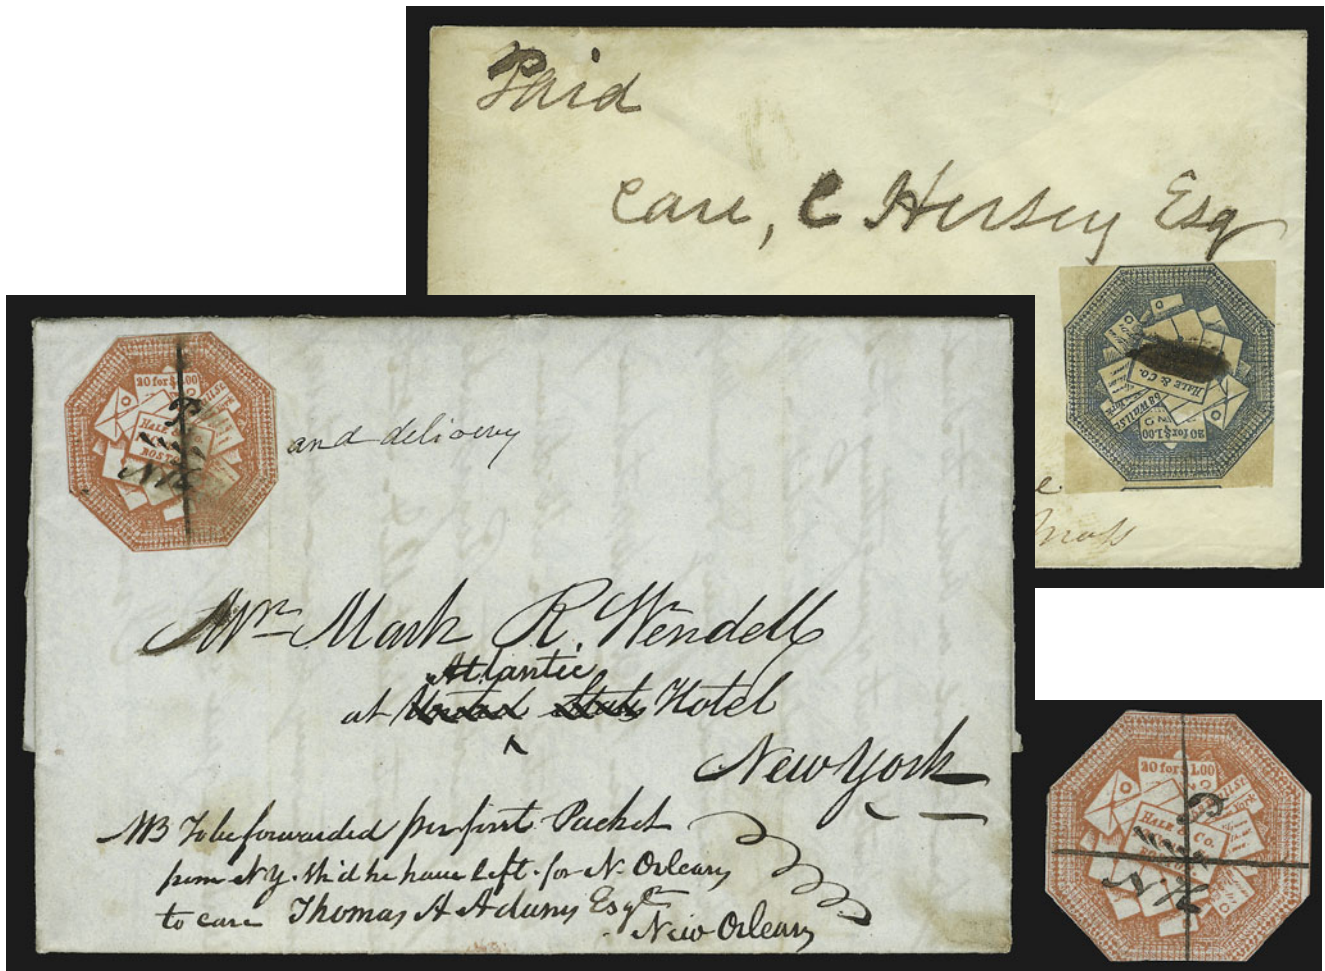 Paid
Care, C Hersey Esq
20 for $1.00
HALE & CO.
68 Wall St.
20 for $1.00
HALE & Co.
BOSTON
and delivery
Mass
Mr Mark R. Wendell
Atlantic
at United States Hotel
^
New York
NB To be forwarded per first Packet
from N.Y. sh'd he have left for N. Orleans
to care Thomas A Adams Esqr
New Orleans
20 for $1.00
HALE & Co.